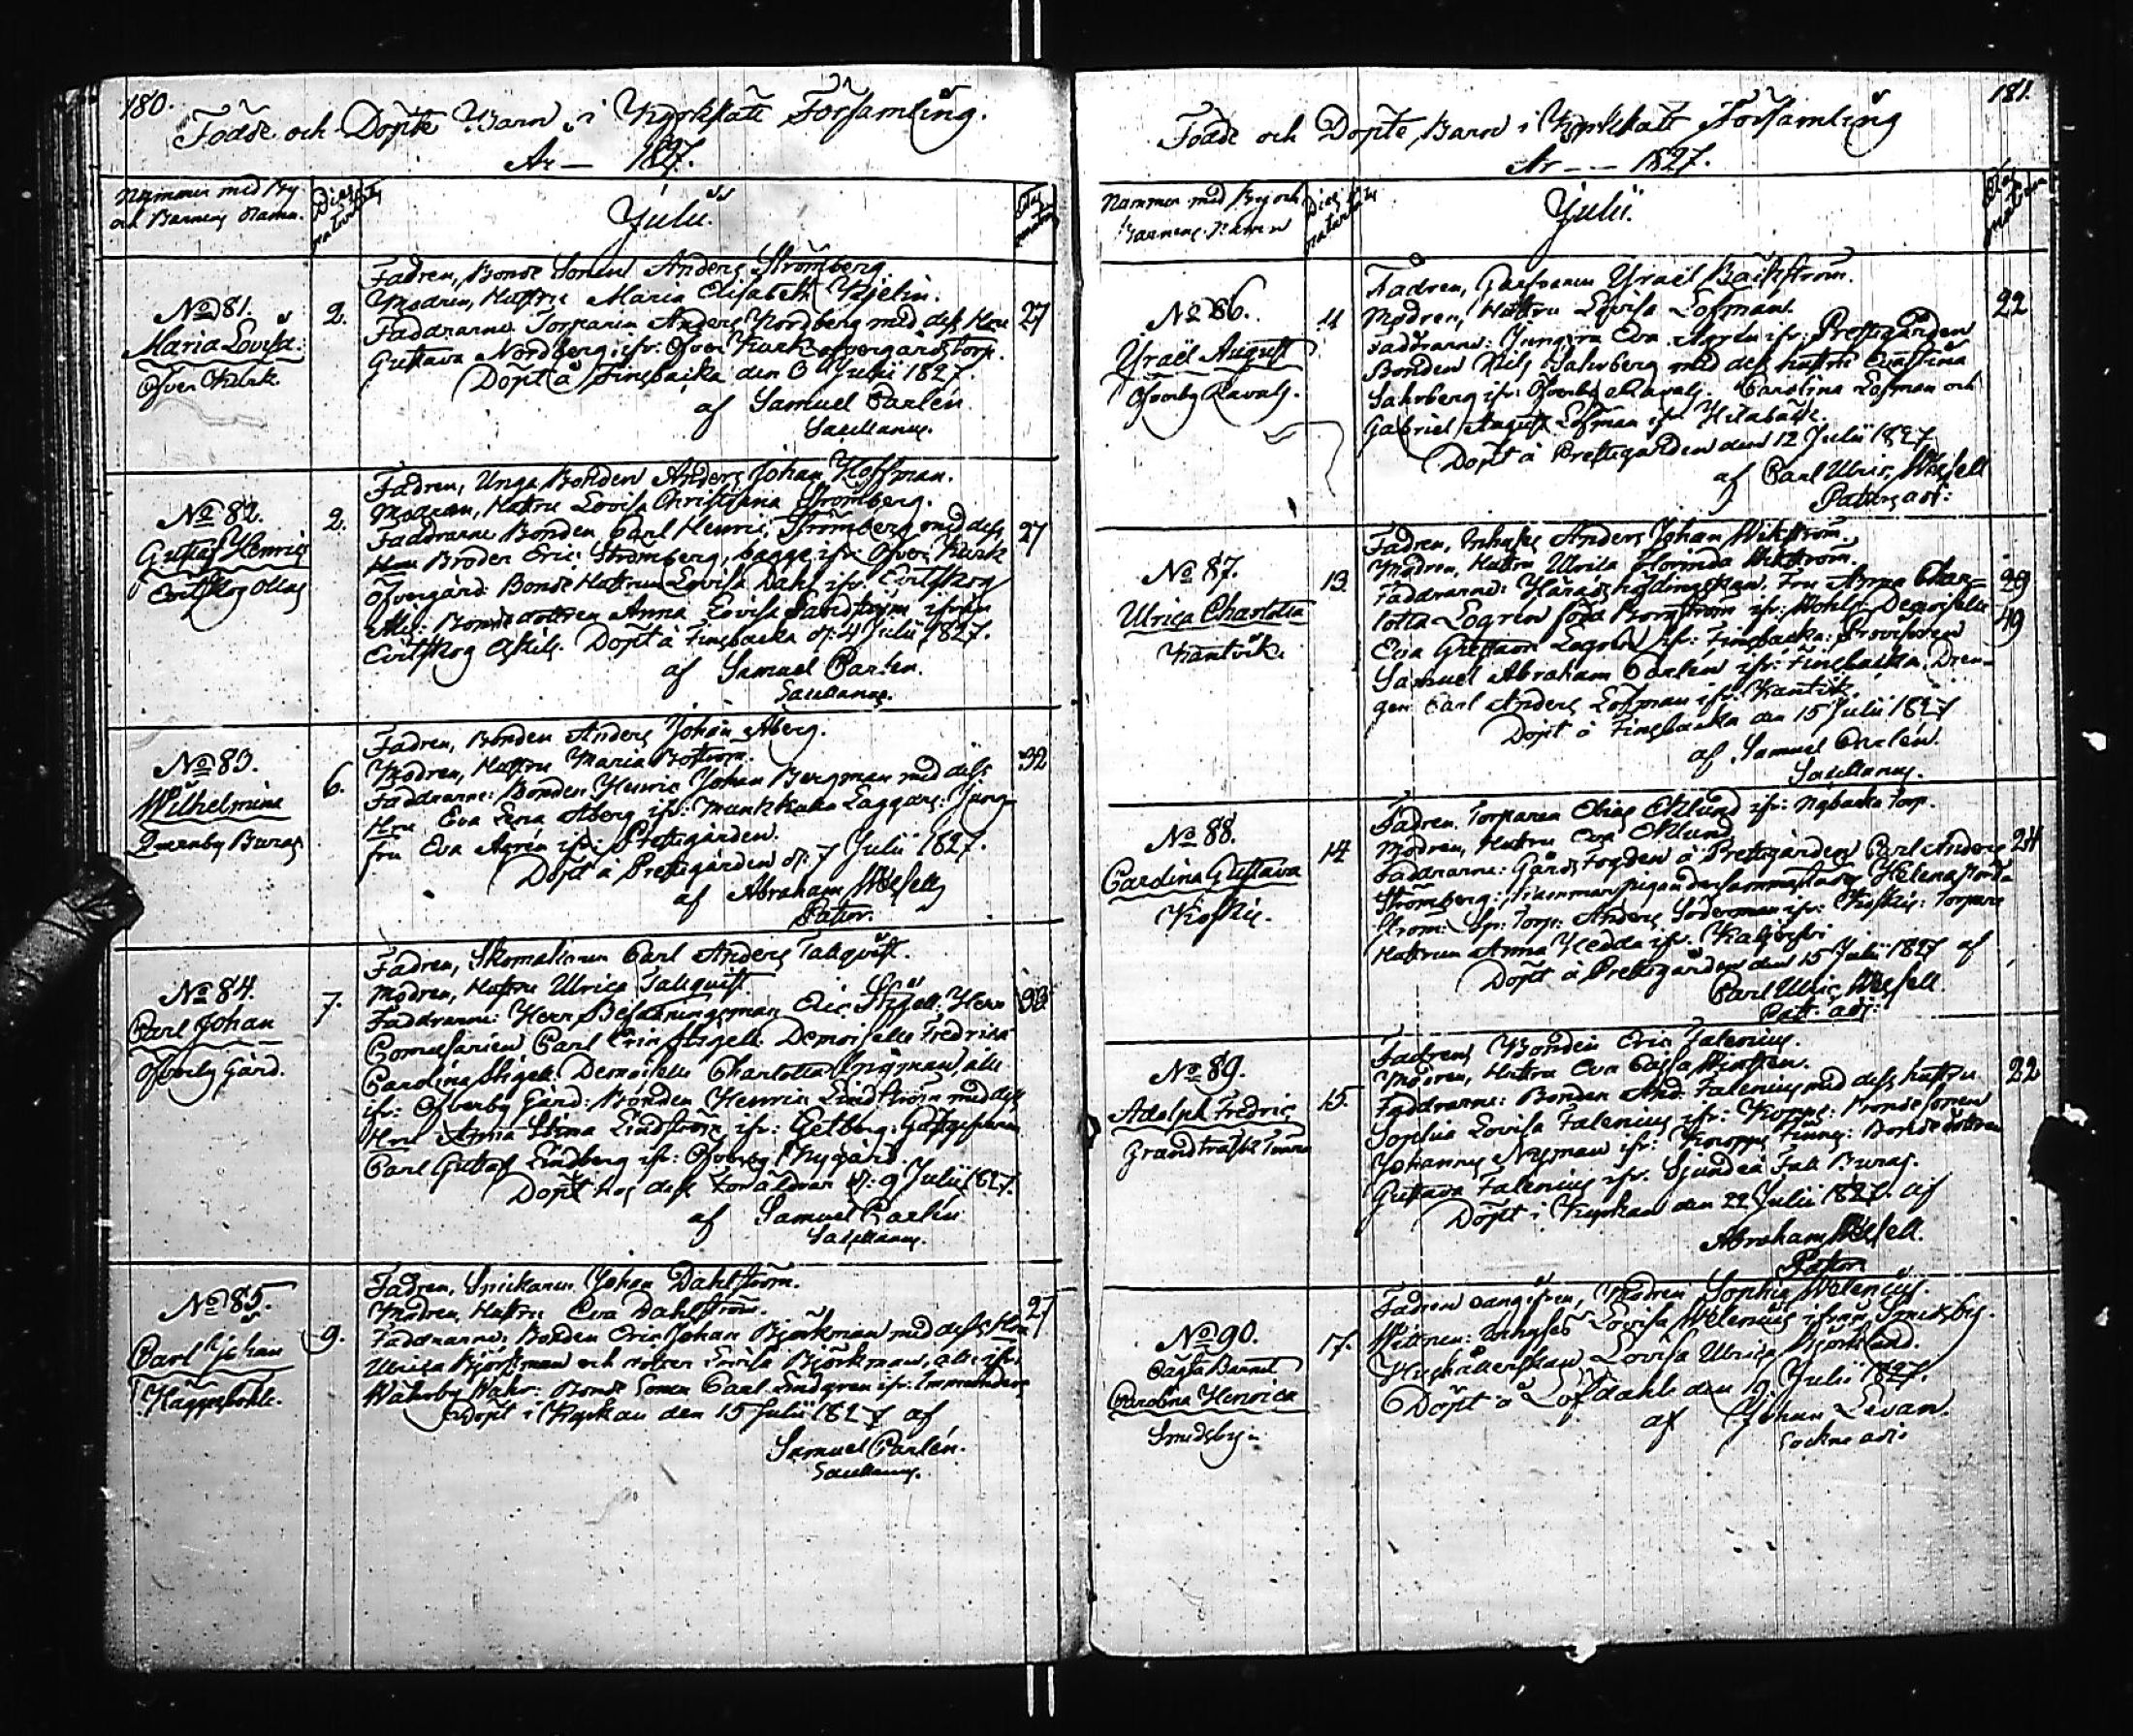 180.
Födde och Döpte Barn i Kyrkslätt Församling.
År — 1827.
Nummer med By
och Barnens Namn.
Dies
Julii
No 81.
Maria Lovisa.
Öfver Kurk.
2.
Fadren, Bonde Sonen Anders Strömberg.
Modren, Hustru Maria Elisabeth
Faddrarne Torparen Anders Nordberg med dess Hru
Gustava Nordberg, ifr: Öfver Kurk öfvergårds torp.
Döpt å Finsbacka den 3 Julii 1827.
af Samuel Carlén
Sacellanus.
27
No 82.
Gustaf Henric
Evitskog Ollas
2.
Fadren, Unga Bonden Anders Johan Hoffman.
Modren, Hustru Lovisa Christina Strömberg.
Faddrarne Bonden Carl Henric Strömberg med dess
Broder Eric Strömberg, bägge ifr: Öfver Kurk
Öfvergård: Bonde Hustrun Lovisa Dahl ifr: Evitskog
Bondedottren Anna Lovisa Sandström ifrån
Evitskog Eskils. Döpt å Finsbacka d: 4 Julii 1827.
af Samuel Carlén.
Sacellanus.
27
No 83.
Wilhelmina
Qvarnby Buras
6.
Fadren, Bonden Anders Johan Åberg.
Modren, Hustru Maria
Faddrarne: Bonden Henric Johan Bergman med dess
Hru Eva Lena Åberg ifr: Munkkulla Laggars: Jung-
fru Eva Agrén ifr: Prestegården.
Döpt å Prestegården d: 7 Julii 1827.
af Abraham Wesell
Pastor.
32
No 84.
Carl Johan
Öfverby Gård.
7.
Fadren, Skomakaren Carl Anders Tallqvist.
Modren, Hustru Ulrica Tallqvist
Faddrarne: Herr Besiktningsman Eric Stigell: Herr
Carl Eric Stigell: Demoiselle Fredrica
Carolina Stigell: Demoiselle Charlotta Nyman, alla
ifr: Öfverby Gård: Bonden Henric Lindström med dess
Hru Anna Stina Lindström ifr: Getberg:
Carl Gustaf Lindberg ifr: Öfverby Nygård
Döpt hos dess Föräldrar d: 9 Julii 1827.
af Samuel Carlén
Sacellanus.
33
No 85.
Carl Johan
Häggesböhle.
9.
Fadren, Snickaren Johan Dahlström.
Modren, Hustru Eva Dahlström.
Faddrarne: Bonden Eric Johan Björkman med dess Hru
Ulrica Björkman och dotter Lovisa Björkman, alla ifr:
Bonde Sonen Carl Lindgren ifr:
Döpt i Kyrkan den 15 Julii 1827 af
Samuel Carlén.
Sacellanus.
27
181.
Födde och Döpte, Barn i Kyrkslätt Församling
År — 1827.
Nummer med By och
Barnens Namn
Dies
Julii.
No 86.
Israël August
Öfverby Ravals.
11
Fadren, Israël Bäckström.
Modren, Hustru Lovisa Löfman.
Faddrarne: Jungfru Eva Agrén ifr: Prestegården
Bonden Nils Sahrberg med dess hustru
Sahrberg ifr: Öfverby Ravals. Carolina Löfman och
Gabriel August Löfman ifr
Döpt å Prestegården den 12 Julii 1827.
af Carl Ulric Wesell
Past: adj:
22
No 87.
Ulrica Charlotta
Kantvik.
13.
Fadren, Inhyses Anders Johan Wikström.
Modren, Hustru Ulrica Florinda Wikström.
Faddrarne: Häradshöfdingskan, Fru Anna Char-
lotta Logrén föda Bornström ifr: Demoiselle
Eva Gustava Logrén ifr: Finsbacka:
Samuel Abraham Carlén ifr: Finsbacka. Dren-
gen Carl Anders Löfman ifr: Kantvik.
Döpt å Finsbacka den 15 Julii 1827
af Samuel Carlén.
Sacellanus.
29
49
No 88.
Carolina Gustava
Koskis.
14
Fadren, Torparen Elias Eklund ifr: Nybacka Torp.
Modren, Hustru Eva Eklund
Faddrarne: Gårds fogden å Prestegården Carl Anders
Strömberg: pigan dersammastädes Helena
Torp: Anders Söderman ifr: Koskis: Torpare
Hustrun Anna Hedda ifr:
Döpt å Prestegården den 15 Julii 1827 af
Carl Ulric Wesell
Past: adj:
24
No 89.
Adolph Fredric
Grandträsk
15.
Fadren, Bonden Eric Falenius.
Modren, Hustru Eva Cajsa
Faddrarne: Bonden And: Falenius med dess hustru
Sophia Lovisa Falenius ifr: Bondesonen
Johannes Nyman ifr: Bondedottren
Gustava Falenius ifr: Sjundeå Fall Buras.
Döpt i Kyrkan den 22 Julii 1827. af
Abraham Wesell.
Pastor
22
No 90.
Oägta Barnet
Carolina Henrica
Smedsby
17.
Fadren oangifven, Modren Sophia Welenius.
Wittnen: Inhyses Lovisa Welenius ifrån Smedsby.
Hushållerskan Lovisa Ulrica Björklund.
Döpt å Löfdahl den 19. Julii 1827.
af Johan Levan.
Sockne adj: